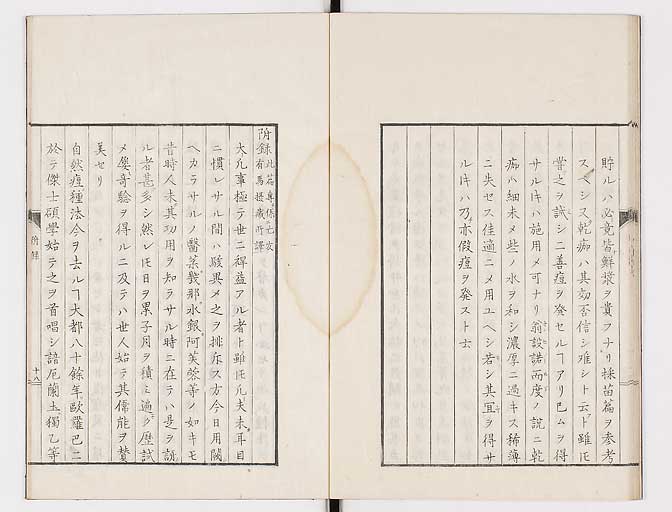 貯ルハ必竟皆鮮漿ヲ貴フナリ採苗篇ヲ参考
スヘシ又乾痂ハ其効否信シ难シト云ト雖𪜈
甞之ヲ試シニ善痘ヲ発セルヿアリ已ムヲ得
サル𪜈ハ施用メ可ナリ翁設諾両度ノ説ニ乾
痂ハ細末メ些ノ水ヲ和シ濃厚ニ過キス稀薄
ニ失セス佳適ニメ用ユヘシ若シ其宜ヲ得サ
ル𪜈ハ乃亦假痘ヲ発スト士
附録 此篇専係亡友
有馬摂蔵所譯
大凡事極テ世ニ稗益アル者ト雖𪜈凡夫未耳目
ニ慣レサル間ハ駭異メ之ヲ排斥ス方今日用闕
ヘカラサルノ醫薬幾那水銀阿芙蓉等ノ如キモ
昔時人未其功用ヲ知ラサル時ニ在テハ是ヲ訝
ル者甚多シ然レ𪜈日ヲ累子月ヲ積ミ遍ク歴試
メ奥竒験ヲ得ルニ及テハ世人始テ其儁能ヲ賛
美セリ
自然痘種法今ヲ去ルヿ大都八十餘年歐羅巴ニ
於テ傑士碩學始テ之ヲ首唱シ諳厄蘭土獨乙等
附録
十八